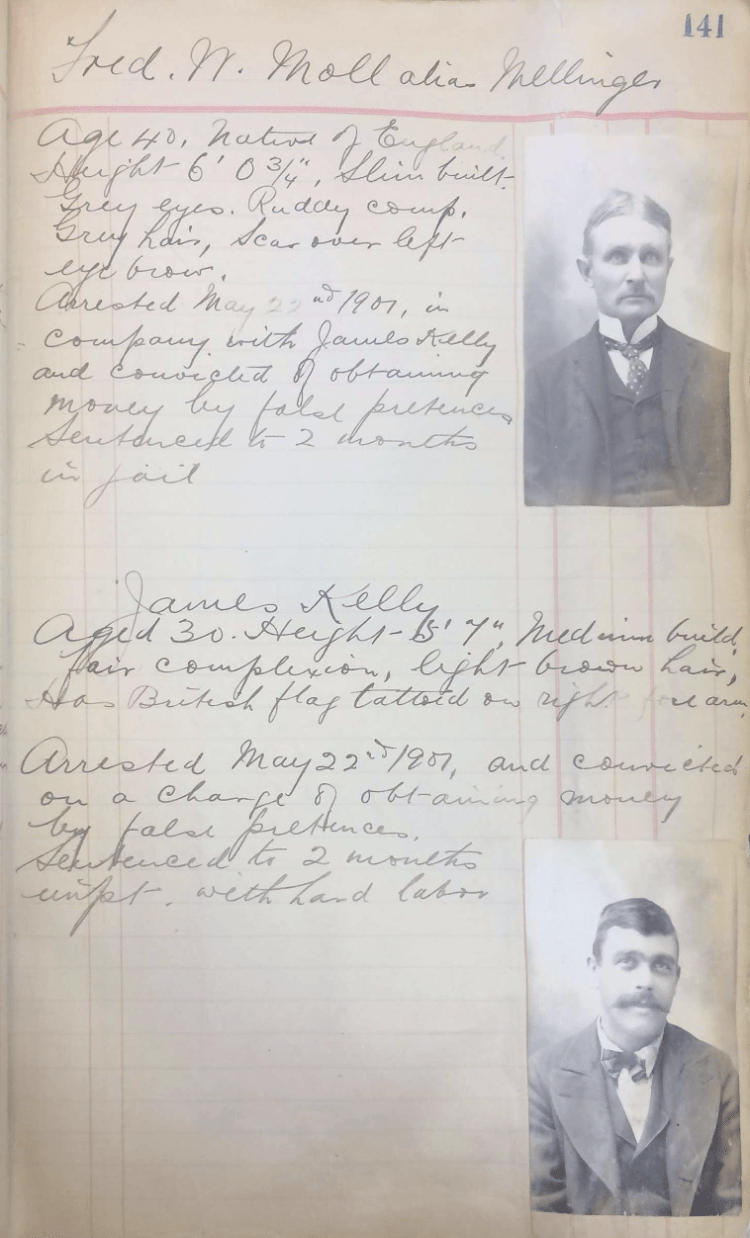 141
Fred. W. Moll alias Mellinger
Age 40. Native of England.
Height 6' 0 3/4", Slim built.
Grey eyes. Ruddy comp.
Grey hair, Scar over left
eye brow.
Arrested May 22nd 1901, in
company with James Kelly
and convicted of obtaining
money by false pretences
Sentenced to 2 months
in jail
James Kelly
Aged 30. Height - 5' 7", Medium build,
fair complexion, light brown hair,
Has British flag tattoid on right fore arm
Arrested May 22nd 1901, and convicted
on a charge of obtaining money
by false pretences.
Sentenced to 2 months
impt. with hard labor